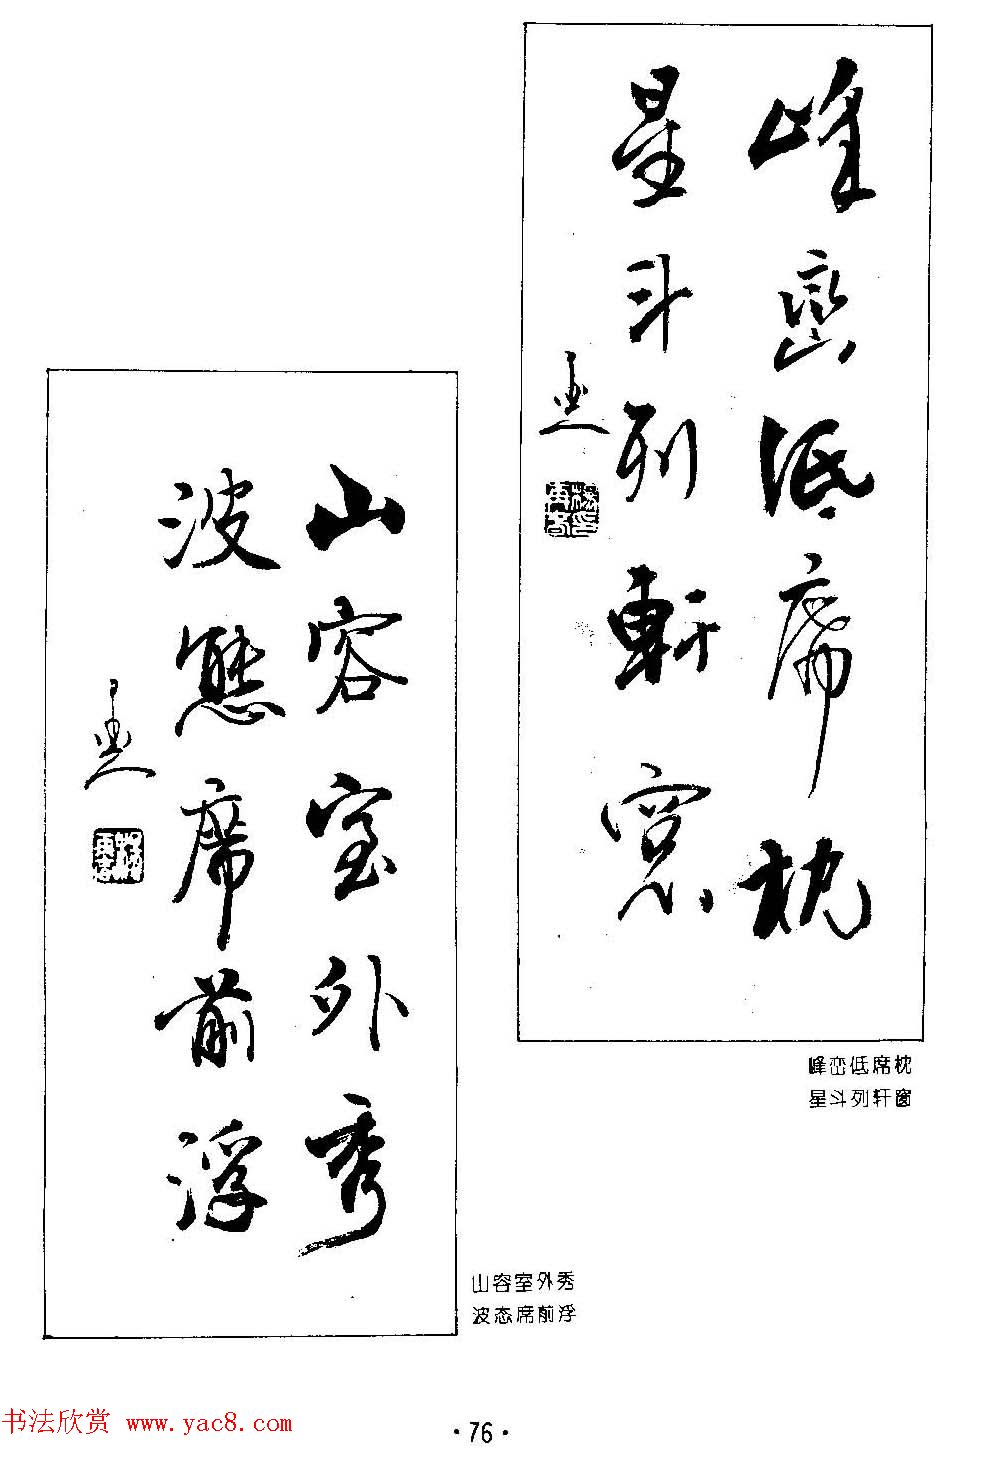 峰巒低席枕
星斗列軒窓
峰峦低席枕
星斗列轩窗
山容室外秀
波態席前浮
山容室外秀
波态席前浮
书法欣赏 www.yac8.com
·76·